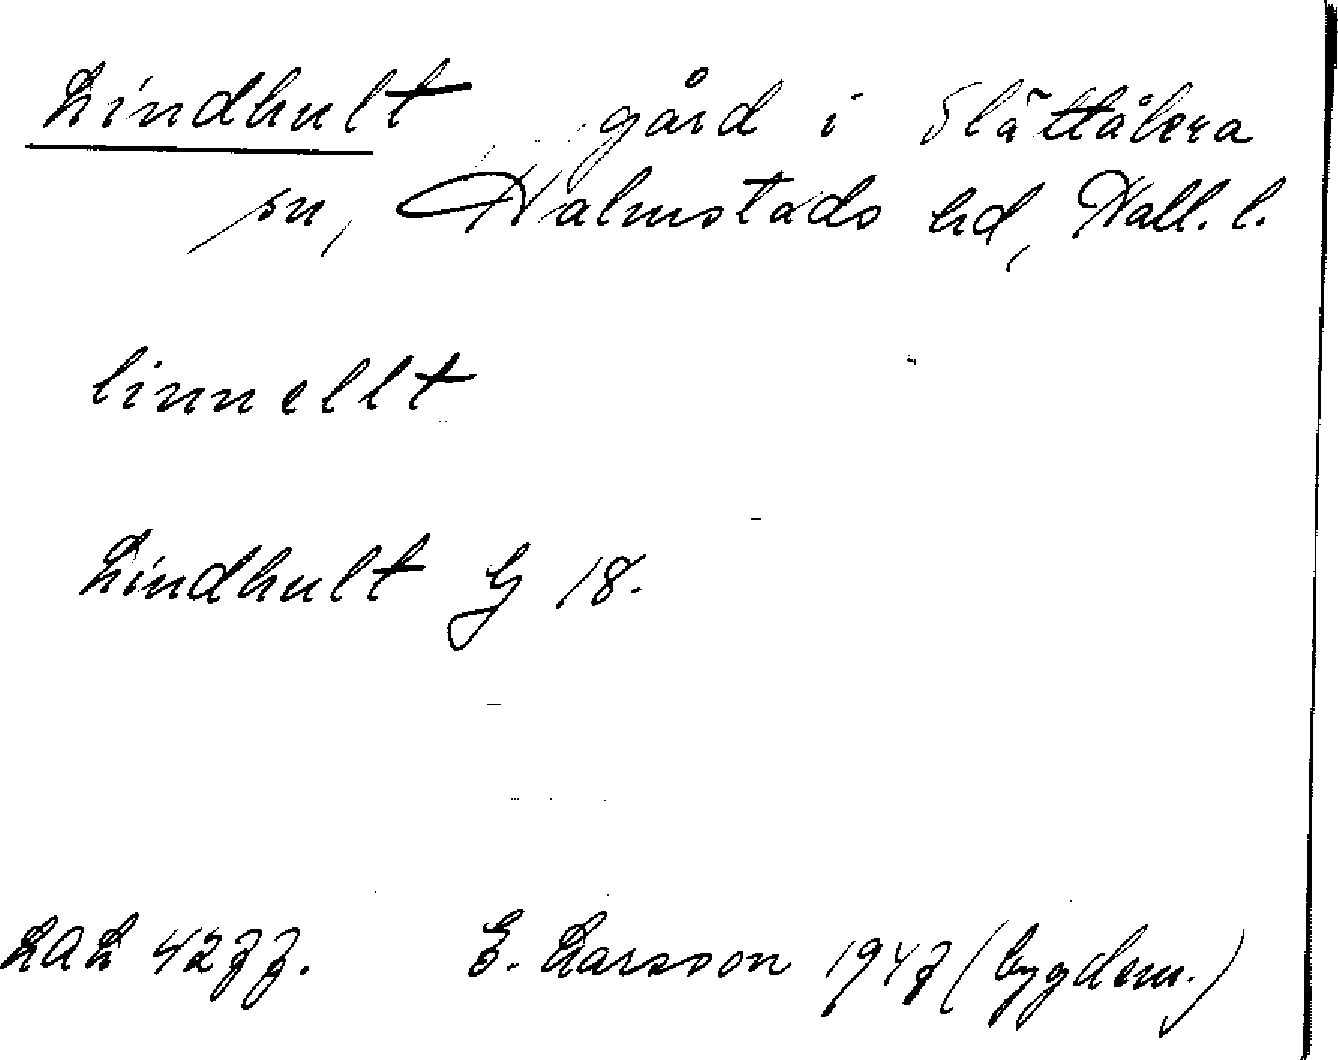 Lindhult gård i Slättåkra
sn, Halmstads hd, Hall. l.
linnellt
Lindhult G 18.
LAL 4277. E. Larsson 1947 (bygdem.)